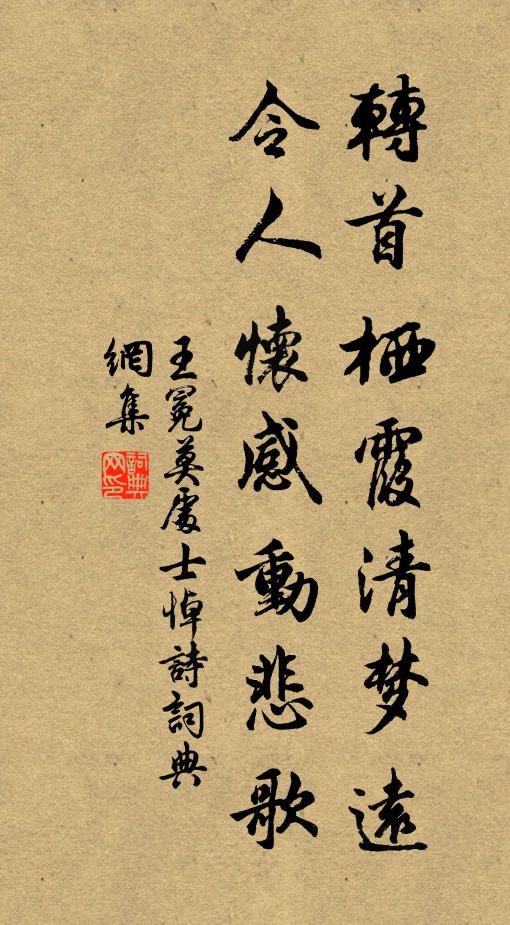 轉首栖霞清梦遠
令人懷感動悲歌
王冕莫處士悼詩詞典
網集
詞典
网印